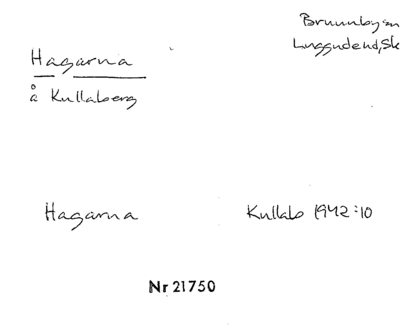 Brunnby sn
Luggude hd, Sk
Hagarna
å Kullaberg
Hagarna
Kullabo 1942:10
Nr 21750